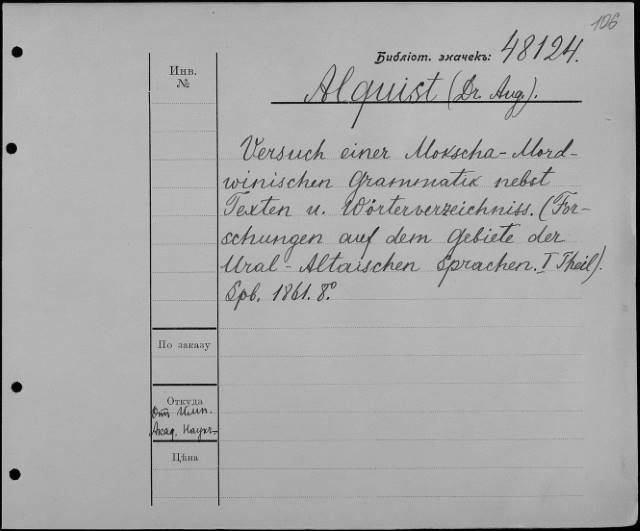 106
Библіот. значекъ: 48124.
Инв.
№
Alquist (Dr. Aug.).
Versuch einer Mokscha-Mord-
winischen Grammatik nebst
Texten u. Wörterverzeichniss. (For-
schungen auf dem Gebiete der
Ural-Altaischen Sprachen. I Theil).
Spb. 1861. 8°.
По заказу
Откуда
Отъ Имп.
Акад. Наукъ
Цѣна